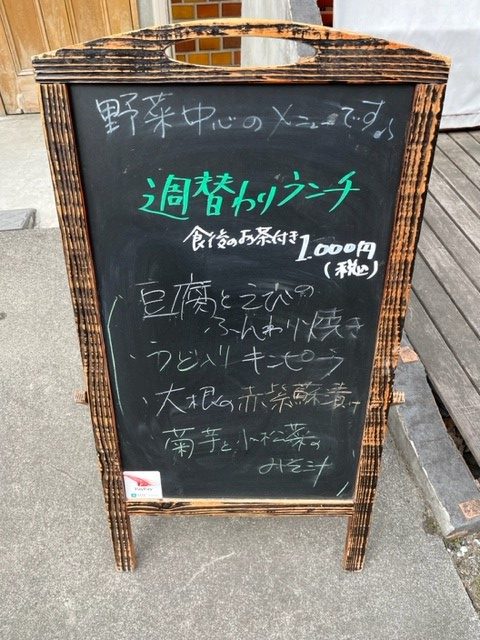 野菜中心のメニューです。
週替わりランチ
食後のお茶付き 1000円
(税込)
豆腐とえびの
ふんわり焼き
・うど入りキンピラ
・大根の赤紫蘇漬け
・菊芋と小松菜の
みそ汁
PayPay